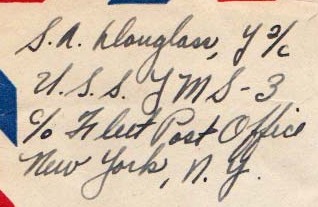 S. A. Douglass, Y 2/c
U. S. S. YMS-3
c/o Fleet Post Office
New York, N. Y.